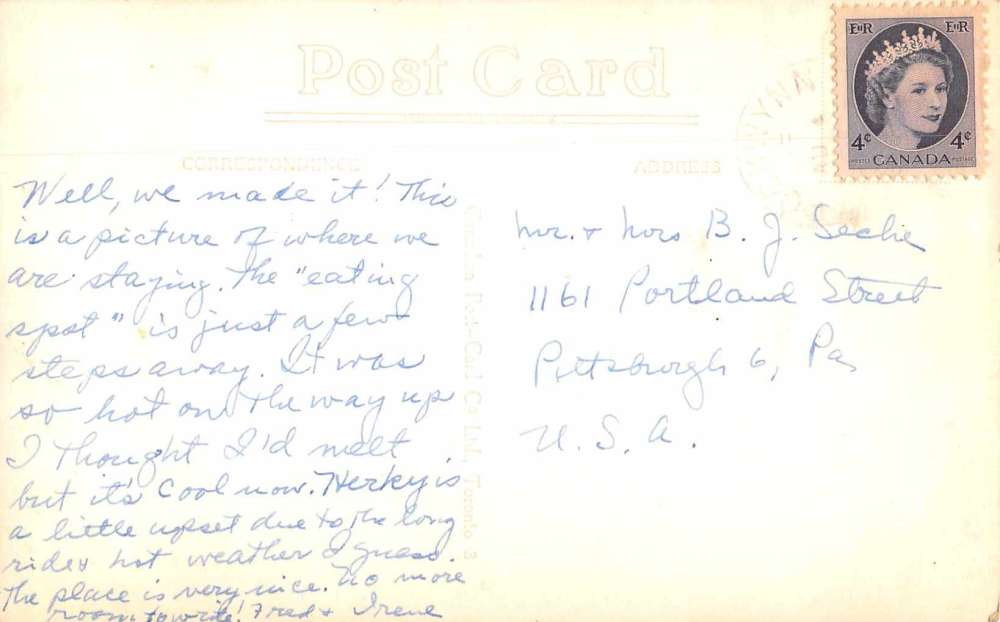 Post Card
CORRESPONDENCE
ADDRESS
EIIR EIIR
4¢ 4¢
POSTES CANADA POSTAGE
Well, we made it! This
is a picture of where we
are staying. The "eating
spot" is just a few
steps away. It was
so hot on the way up
I thought I'd melt
but it's cool now. Herky is
a little upset due to the long
ride + hot weather I guess.
The place is very nice. No more
room to write! Fred + Irene
Mr. + Mrs B. J. Seche
1161 Portland Street
Pittsburgh 6, Pa
U. S. A.
Post Card Co. Ltd., Toronto 3